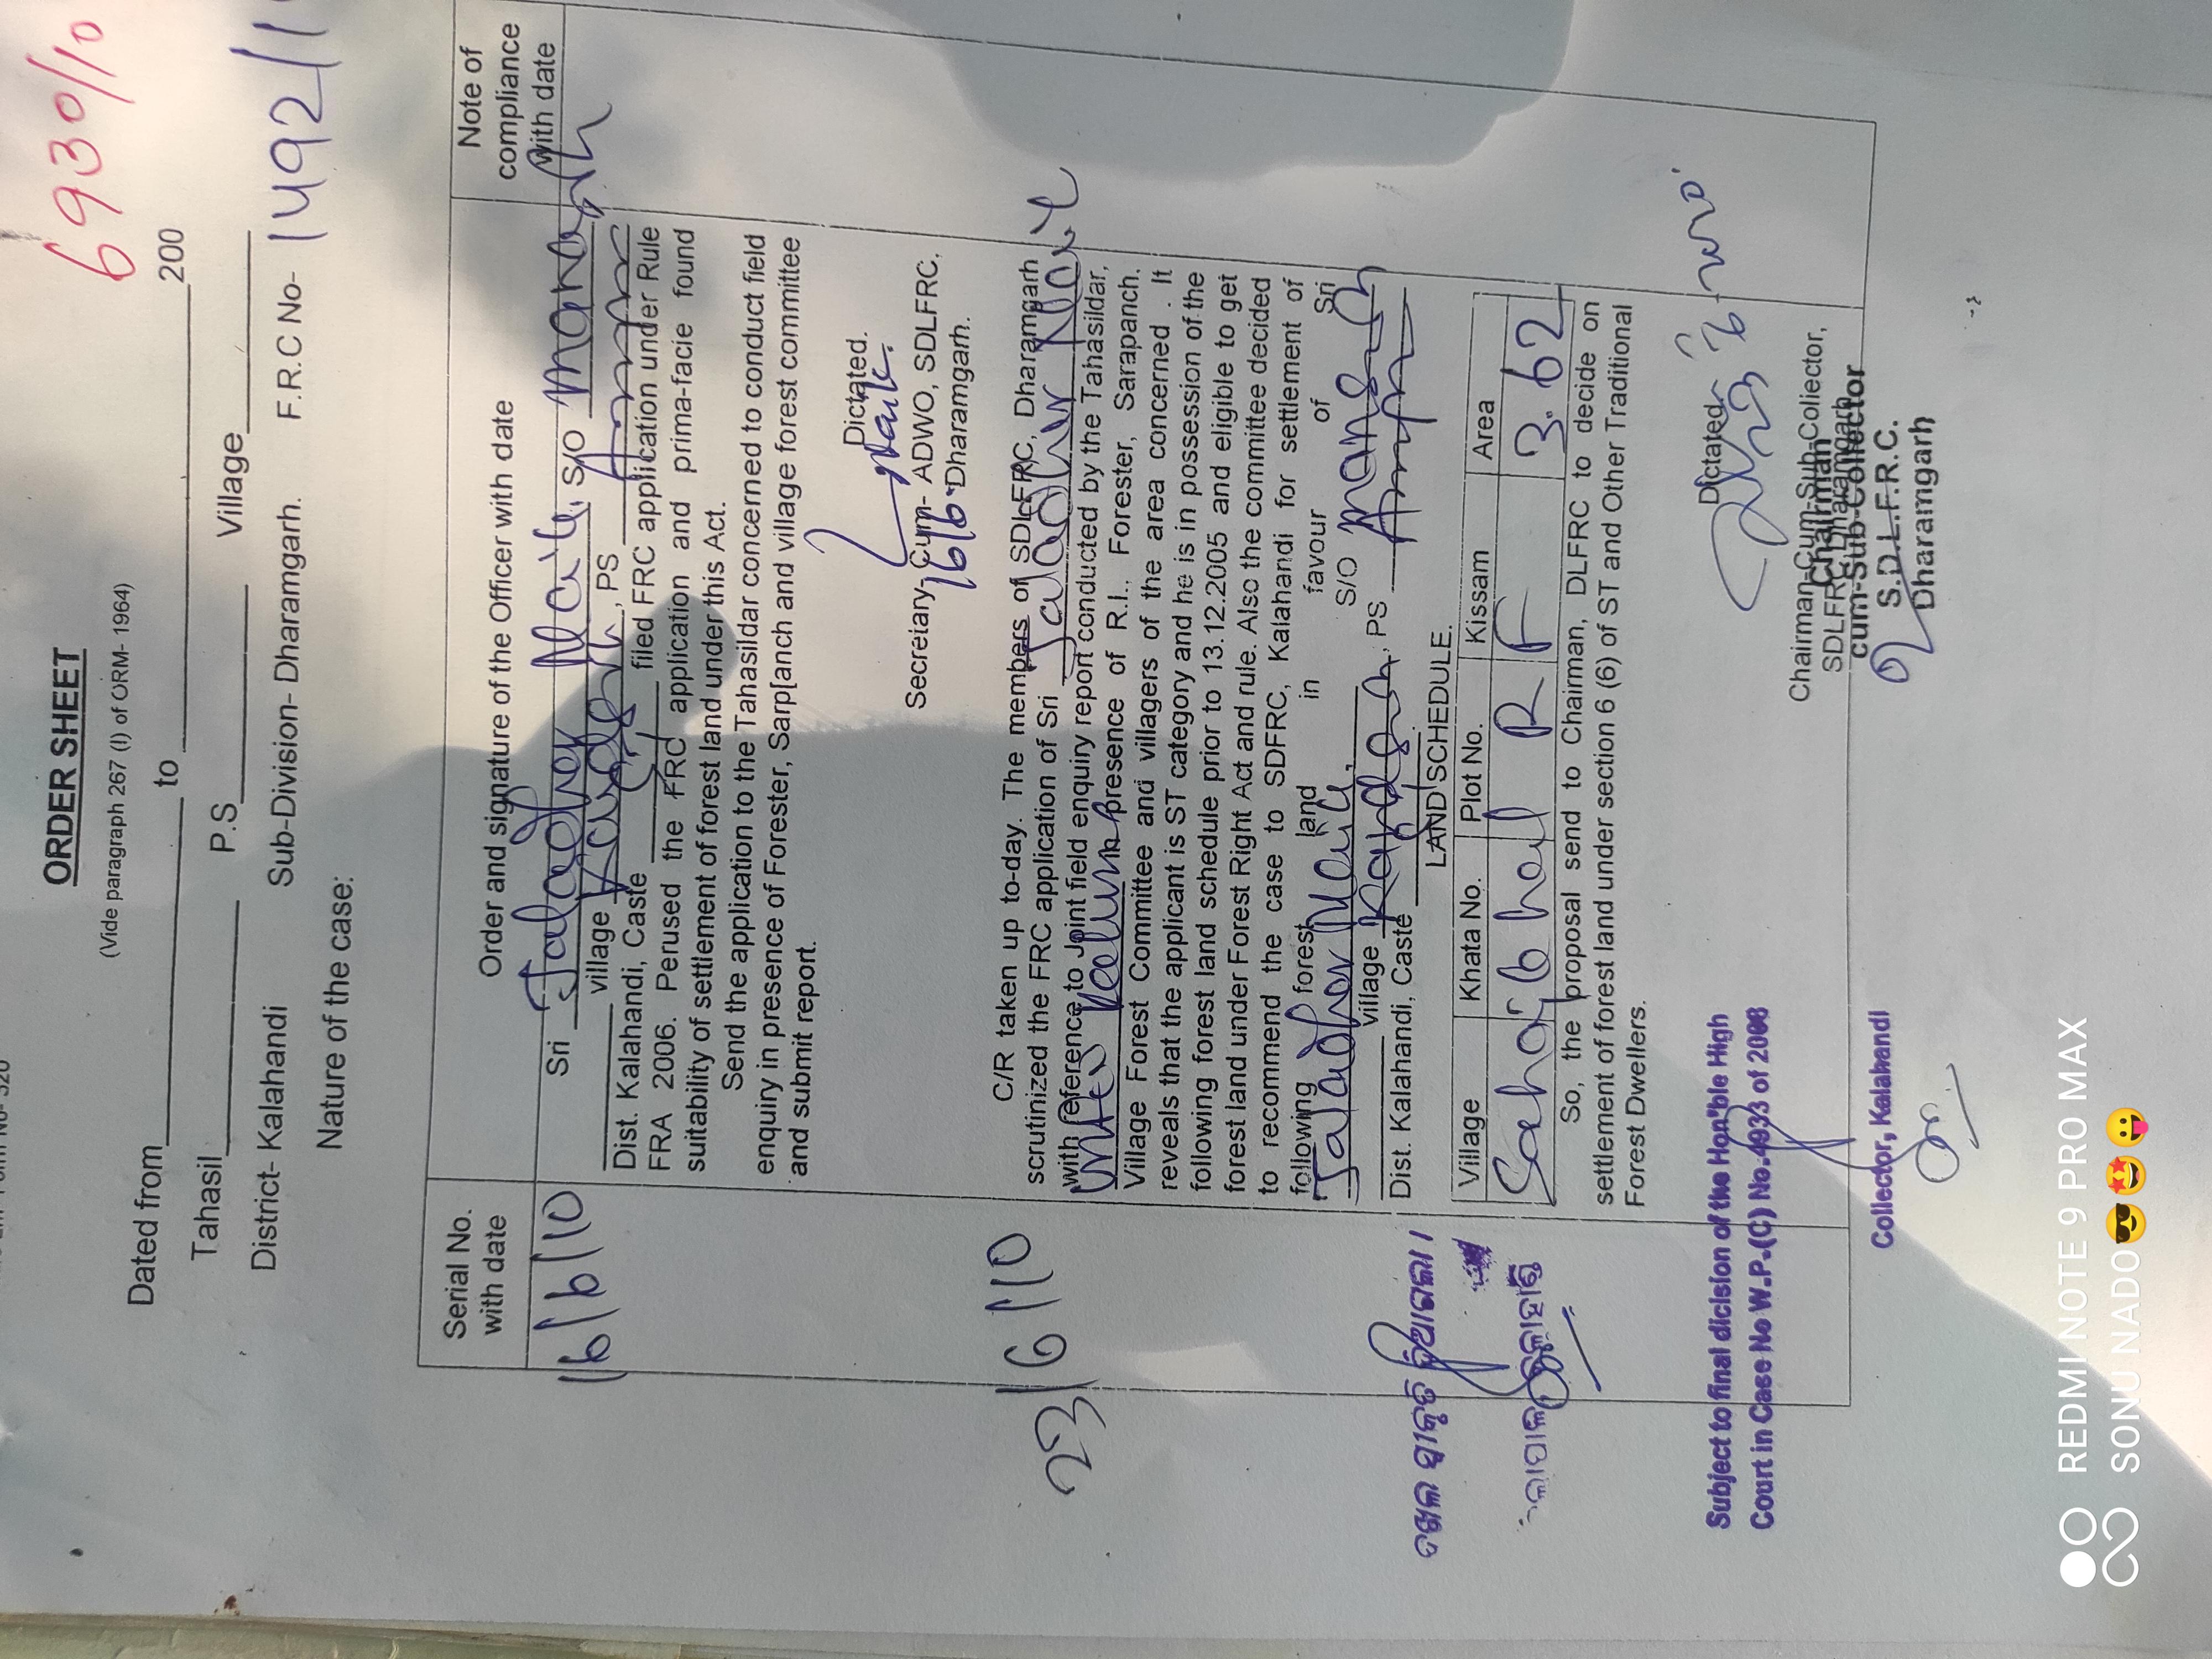 6930/10
ORDER SHEET
(Vide paragraph 267 (I) of ORM- 1964)
Dated from to 200
Tahasil P.S Village
District- Kalahandi Sub-Division- Dharamgarh. F.R.C No- 1492/1
Nature of the case:
Serial No. with date
Order and signature of the Officer with date
Note of compliance with date
16/6/10
Sri Jaladhar Naik S/O
village , PS
Dist. Kalahandi, Caste filed FRC application under Rule
FRA 2006. Perused the FRC application and prima-facie found
suitability of settlement of forest land under this Act.
Send the application to the Tahasildar concerned to conduct field
enquiry in presence of Forester, Sarp[anch and village forest committee
and submit report.
Dictated.
Secretary-Cum- ADWO, SDLFRC,
16/6 Dharamgarh.
23/6/10
C/R taken up to-day. The members of SDLFRC, Dharamgarh
scrutinized the FRC application of Sri Jaladhar Naik
with reference to Joint field enquiry report conducted by the Tahasildar,
presence of R.I.. Forester, Sarapanch.
Village Forest Committee and villagers of the area concerned . It
reveals that the applicant is ST category and he is in possession of the
following forest land schedule prior to 13.12.2005 and eligible to get
forest land under Forest Right Act and rule. Also the committee decided
to recommend the case to SDFRC, Kalahandi for settlement of
following forest land in favour of Sri
Jaladhar Naik, S/O
village , PS
Dist. Kalahandi, Caste
LAND SCHEDULE.
Village Khata No. Plot No. Kissam Area
R F 3.62
So, the proposal send to Chairman, DLFRC to decide on
settlement of forest land under section 6 (6) of ST and Other Traditional
Forest Dwellers.
Dictated
Chairman-Cum-Sub-Collector,
SDLFRC, Dharamgarh
Chairman
cum-Sub-Collector
S.D.L.F.R.C.
Dharamgarh
Subject to final dicision of the Hon'ble High
Court in Case No W.P.(C) No.4933 of 2008
Collector, Kalahandi
REDMI NOTE 9 PRO MAX
SONU NADO😎🤩😛